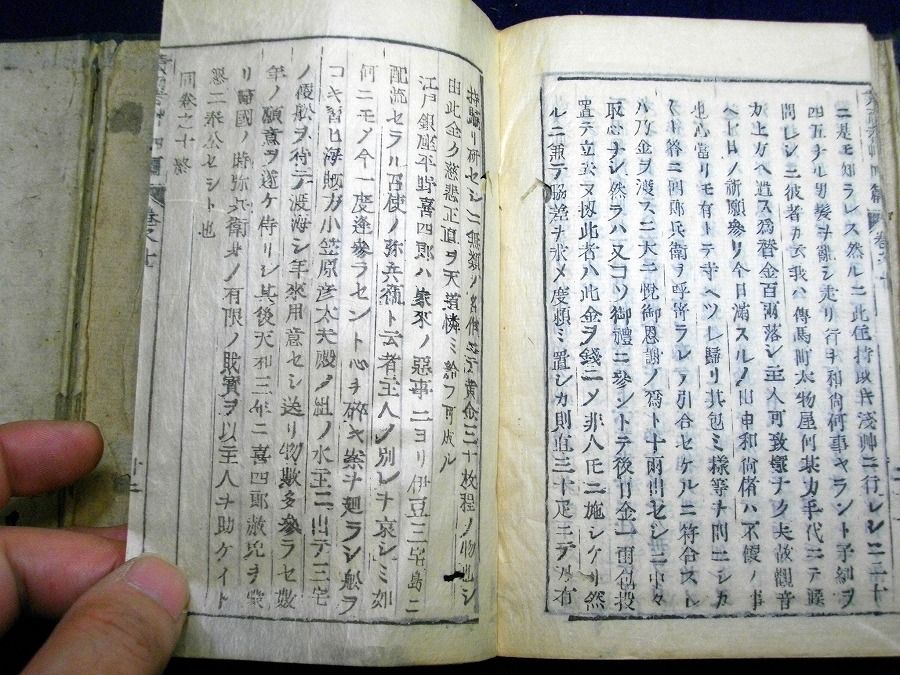 ニ是モ知ラレス然ルニ此住持或時淺艸ニ行レシニ二十
四五ナル男髮ヲ亂シ走リ行ヲ和尚何事ヤラント子細ヲ
問レシニ彼者カ云我ハ傳馬町太物屋何某カ手代ニテ候
カ上方ヘ遣ス爲替金百兩落シ主人可致樣ナク夫故觀音
ヘ七日ノ祈願參リ今日滿スルノ由申和尚偖ハ不便ノ事
也心當リモ有トテ寺ヘツレ歸リ其包ミ樣等ヲ問ニシカ
答ニ四郎兵衛ヲ呼寄ラレ引合セケルニ符合スレ
ハ乃金ヲ渡スニ大ニ悅御恩謝ノ爲ト十兩出セシニ中々
取心ナシ然ラハ又コソ御禮ニ參シトテ後日金一兩包投
置テ立去又扨此者ハ此金ヲ錢ニノ非人氏ニ施シケリ然
ルニ兼テ脇差ヲ求メ度賴ミ置シカ則直三十疋ニテ有
持歸リ研セシニ無類ノ名作ニテ黃金三十枚程ノ物也シ
由此全ク慈悲正直ヲ天道憐ミ給フ可成ル
江戶銀座平野喜四郎ハ家來ノ惡事ニヨリ伊豆三宅島ニ
配流セラル召使ノ弥兵衛ト云者主人ノ別レヲ哀シミ如
何ニモノ今一度逢參ラセント心ヲ碎キ案ヲ廻ラシ船ヲ
コキ習ヒ海賊方小笠原彥太夫殿ノ組ノ水主ニ出テ三宅
ノ便船ヲ待テ渡海シ年來用意セシ送リ物數多參ラセ數
年ノ願意ヲ遂ケ侍リシ其後天和三年ニ喜四郎赦免ヲ蒙
リ歸國ノ時弥兵衛オノ有限ノ財寶ヲ以主人ヲ助ケイト
懇ニ奉公セシト也
同卷之十終